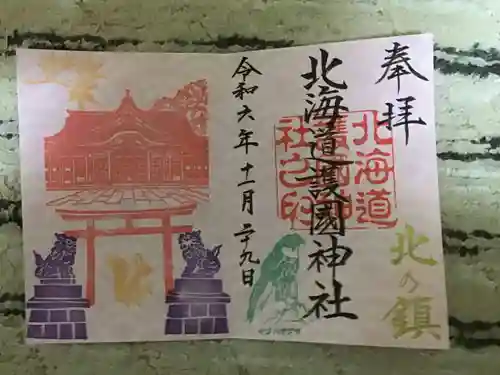 奉拝
北の鎮
北海道護國神社
北海道
護國神
社之印
令和六年十一月二十九日